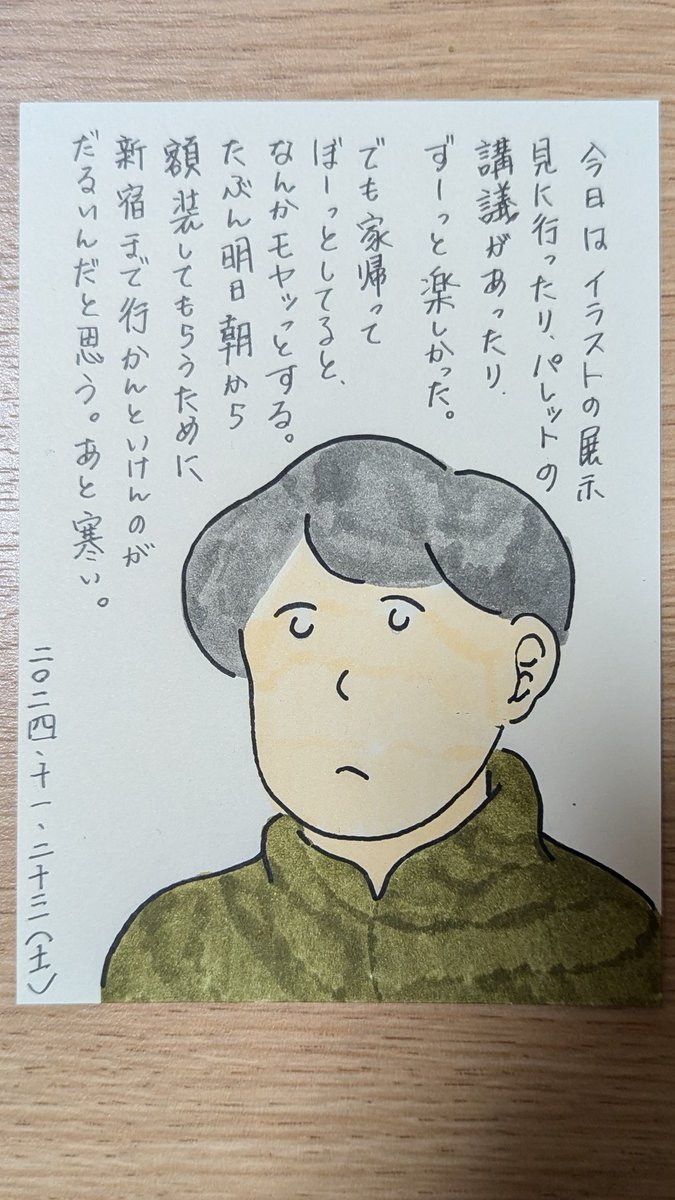 今日はイラストの展示
見に行ったり、パレットの
講議があったり
ずーっと楽しかった。
でも家帰って
ぼーっとしてると、
なんかモヤッっとする。
たぶん明日朝から
額装してもらうために
新宿まで行かんといけんのが
だるいんだと思う。あと寒い。
二〇二四、十一、二十三(土)